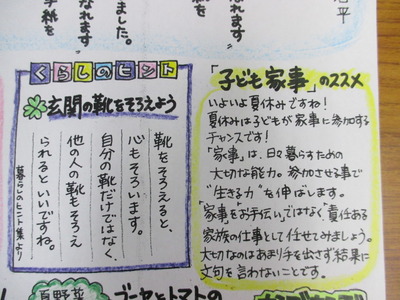 ました。
手紙を
なれます
れます
を
くらしのヒント
玄関の靴をそろえよう
靴をそろえると、
心もそろいます。
自分の靴だけではなく、
他の人の靴もそろえ
られるといいですね。
暮らしのヒント集より
「子ども家事」のススメ
いよいよ夏休みですね！
夏休みは子どもが家事に参加する
チャンスです！
「家事」は、日々暮らすための
大切な能力。参加させる事で
"生きる力"を伸ばします。
「家事」を"お手伝い"ではなく"責任ある
家族の仕事として任せてみましょう。
大切なのはあまり手を出さず結果に
文句を言わないことです。
夏野菜
ゴーヤとトマトの